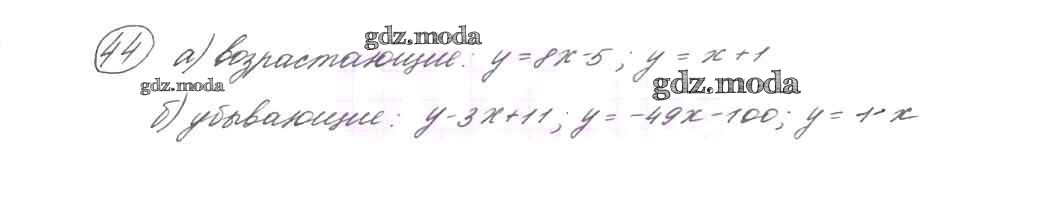 44 а) возрастающие: y=8x-5; y=x+1
gdz.moda
gdz.moda
gdz.moda
б) убывающие: y-3x+11; y=-49x-100; y=1-x